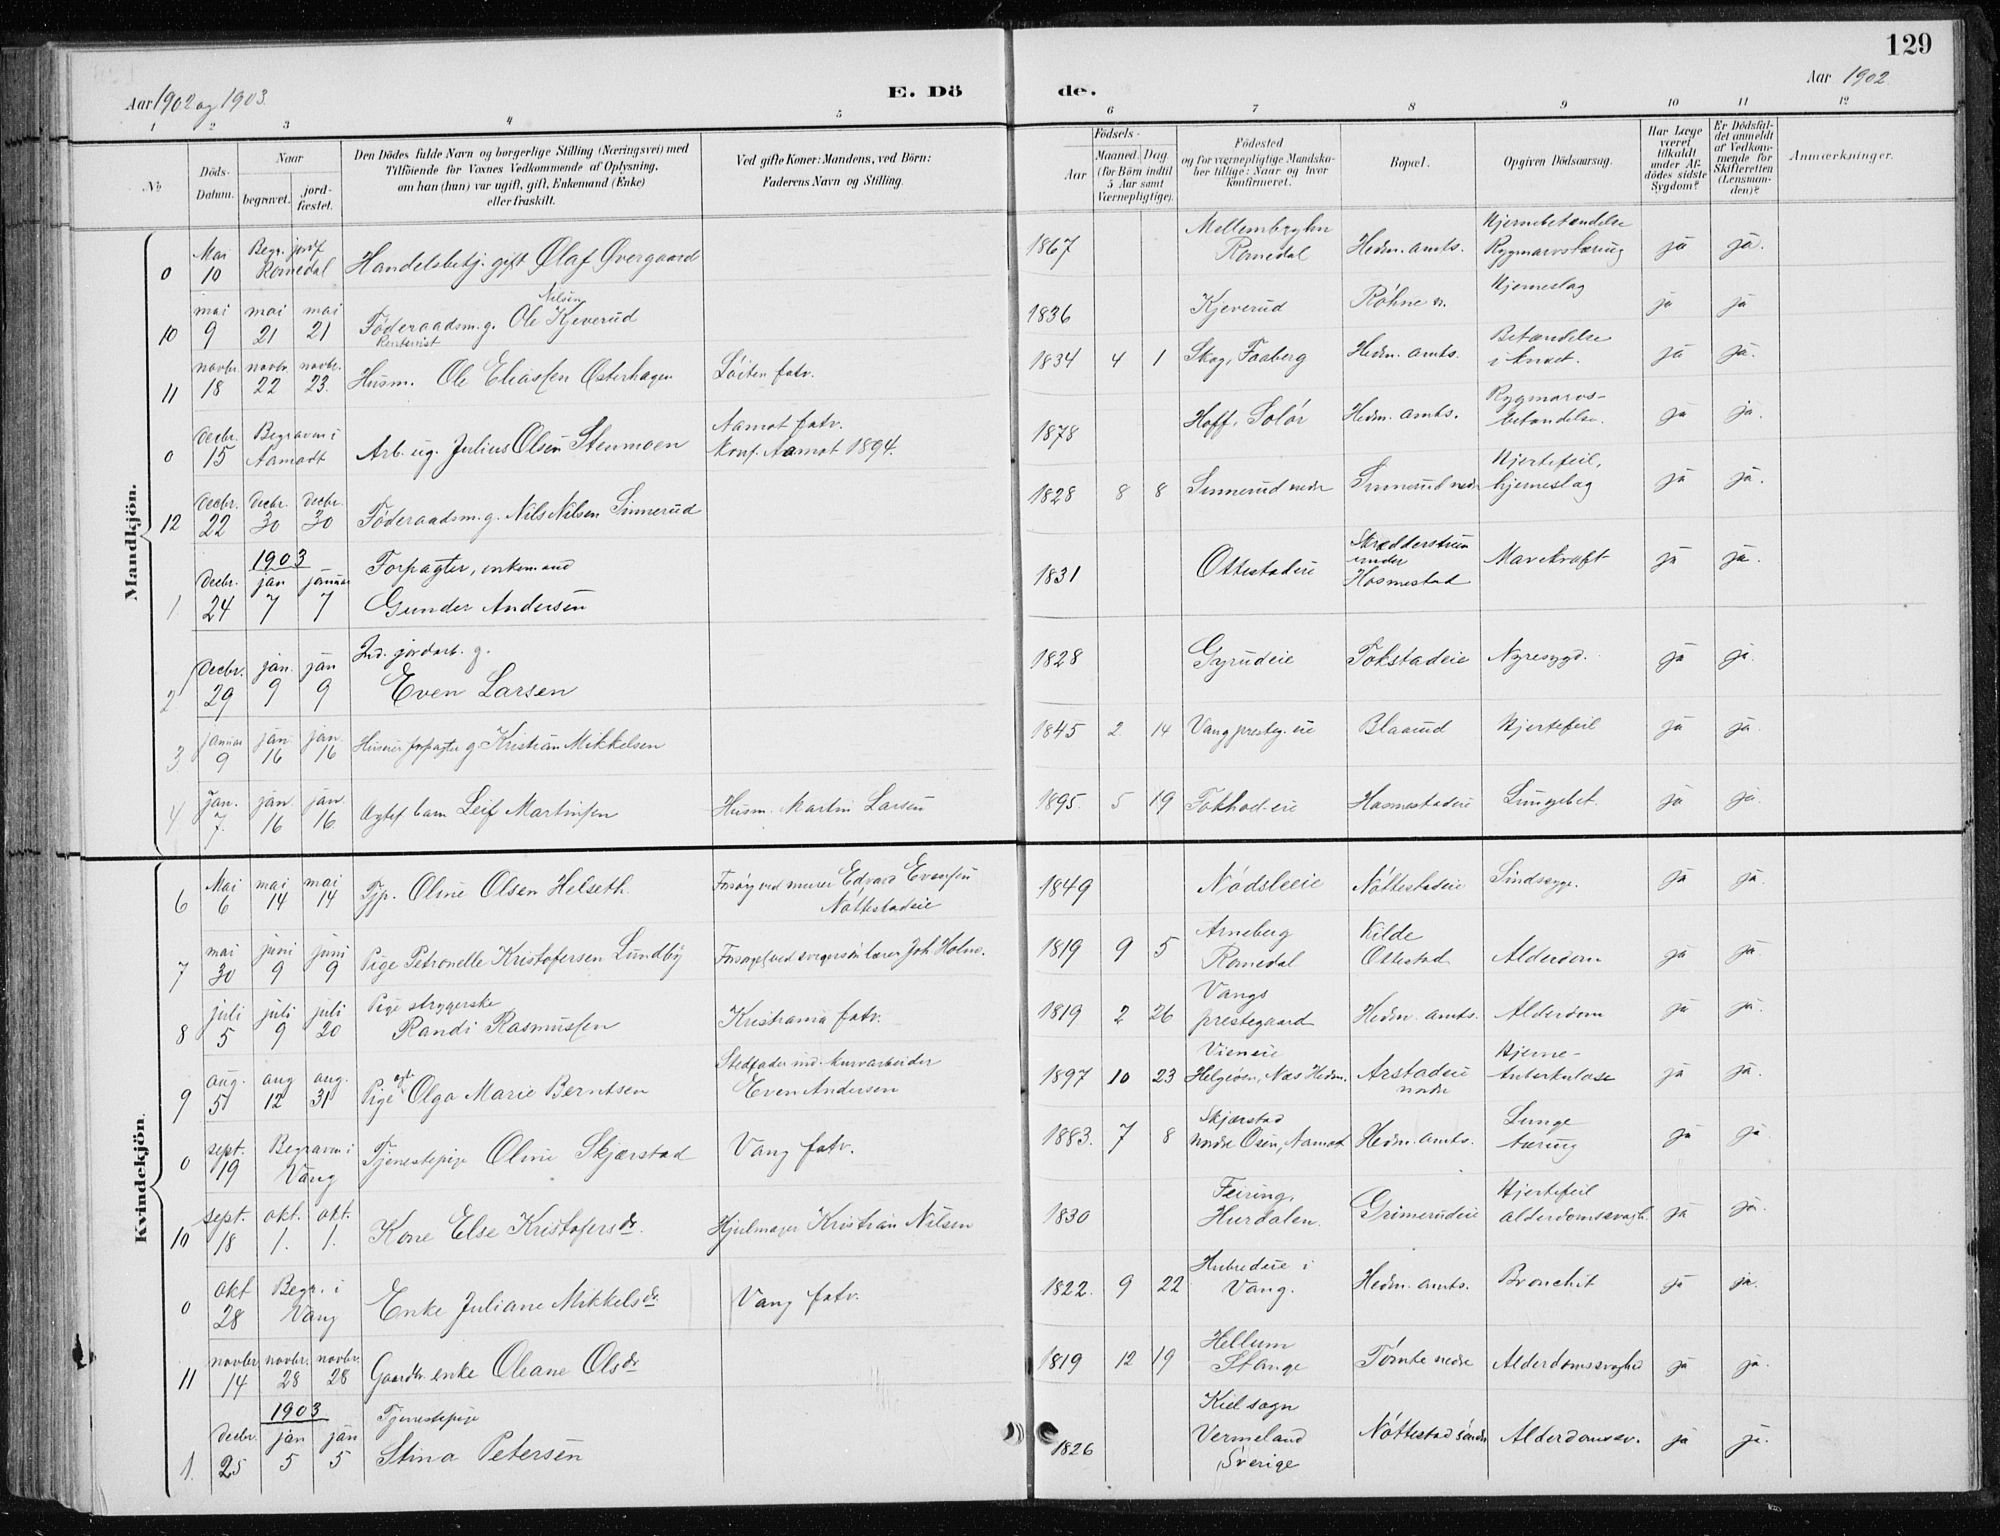 129
Aar 1902 og 1903.
E. Dö
de.
Aar 1902
1 2 3 4 5 6 7 8 9 10 11 12
№
Döds-Datum.
Naar
begravet.
jord-fæstet.
Den Dödes fulde Navn og borgerlige Stilling (Næringsvei) med
Tilföiende for Voxnes Vedkommende af Oplysning,
om han (hun) var ugift, gift, Enkemand (Enke)
eller fraskilt.
Ved gifte Koner: Mandens, ved Börn:
Faderens Navn og Stilling.
Födsels-
Aar
Maaned. Dag
(for Börn indtil
5 Aar samt
Værnepligtige).
Födested
og for værnepligtige Mandska-
ber tillige: Naar og hvor
konfirmeret.
Bopæl.
Opgiven Dödsaarsag.
Har Læge
været
tilkaldt
under Af-
dödes sidste
Sygdom?
Er Dödsfal-
det anmeldt
af Vedkom-
mende for
Skifteretten
(Lensman-
den)?
Anmærkninger.
Mandkjön.
0 Mai 10 Begr. jordf Romedal Handelsbetj. gift Olaf Øvergaard 1867 Romedal Hedm. amts. Hjernebetændelse Rygmarvstæring ja ja.
10 mai 9 mai 21 mai 21 Föderaadsm. g. Ole Nilsen Kjeverud 1836 Kjeverud Röhne Hjerneslag ja ja
11 novbr 18 novbr. 22 novbr. 23. Husm. Ole Eliassen Østerhagen Löiten fatv. 1834 4 1 Skog, Faaberg Hedm. amts. Betændelse i knæet. ja ja.
0 Decbr. 15 Begraven i Aamodt Arb. ug. Julius Olsen Stenmoen Aamot fatv. Konf. Aamot 1894. 1878 Hoff, Solör Hedm. amts. Rygmarvs-betændelse. ja ja.
12 Decbr. 22 Decbr. 30 Decbr. 30 Föderaadsm. g. Nils Nilsen Sinnerud 1828 8 8 Sinnerud nedr Sinnerud nedr Hjertefeil, hjerneslag ja ja.
1 Decbr. 24 1903 jan 7 januar 7 Forpagter, enkemand Gunder Andersen 1831 Ottestadeie under Hosmestad Mavekræft ja ja.
2 Decbr. 29 jan. 9 jan 9 Ind. jordarb. g. Even Larsen 1828 Gyrudeie Tokstadeie Nyresygd. ja ja.
3 januar 9 jan. 16 jan. 16 forpagter g. Kristian Mikkelsen 1845 2. 14 Vang presteg. eie Blaarud Hjertefeil ja ja.
4 Jan. 7. jan. 16 jan. 16. Ægtef. barn Leif Martinsen Husm. Martin Larsen 1895. 5 19 Hosmestadeie Lungebet. ja ja.
Kvindekjön.
6 Mai 6 mai 14 mai 14 Tjp. Oline Olsen Helseth Forsörg ved murer Edvard Evensen Nöttestadeie 1849 Nödsleeie Nöttestadeie Sindssyge. ja ja.
7 mai 30 juni 9 juni 9 Pige Petronelle Kristofersen Lundby Forsörget ved svigersön lærer Joh Holm. 1819 9 5 Arneberg Romedal Kilde Ottestad Alderdom ja ja.
8 juli 5 juli 9 juli 20 Pige strygerske Randi Rasmussen Kristiania fatv. 1819 2 26 Vangs prestegaard Hedm. amts. Alderdom ja ja.
9 aug. 5 aug 12 aug. 31 Pige ægte Olga Marie Berntsen Stedfader ind. kurvarbeider Even Andersen 1897 10 23 Vieneie Helgöen, Næs Hedm. Arstadeie nordre Hjerne-tuberkulose ja ja.
0 sept. 19 Begraven i Vang Tjenestepige Oline Skjærstad Vang fatv. 1883. 7 8 Skjærstad nordre Osen, Aamot Hedm. amts. Lunge tæring ja ja.
10 sept. 18 okt. 1. okt. 1. Kone Else Kristofersdr. Hjulmager Kristian Nilsen 1830 Feiring, Hurdalen. Grimerudeie Hjertefeil Alderdomssvagh. ja ja.
0 okt 28 Begr. i Vang Enke Juliane Mikkelsdr. Vang fatv. 1822. 9 22 Hubredeie i Vang. Hedm. amts. Bronchit ja ja.
11 novbr 14 novbr. 28 novbr. 28 Gaardbr. enke Oleane Olsdr 1819 12 19 Hellum Stange Tömte nedre Alderdomssvaghed ja ja.
1. Decbr. 25 1903 jan 5 jan 5 Tjenestepige Stina Petersen 1826 Kiel sogn Vermeland Sverige Nöttestad söndre Alderdomssv. ja ja.